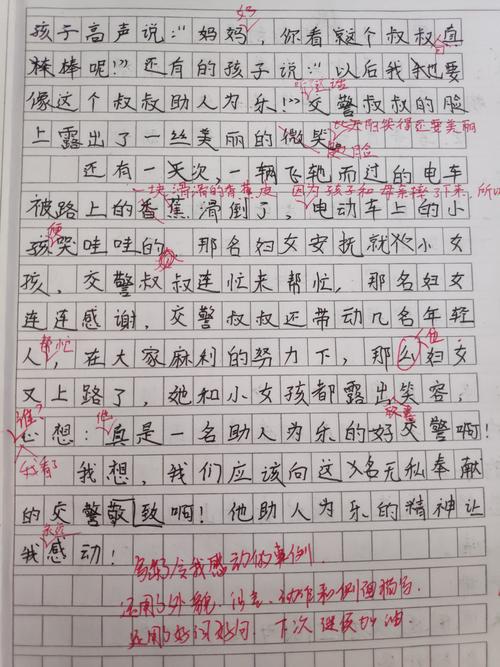 妈
孩子高声说:“妈妈，你看这个叔叔真
棒棒呢!”还有的孩子说:“以后我也要
听了这话
像这个叔叔助人为乐!”交警叔叔的脸
上露出了一丝美丽的微笑
比太阳笑得还要美丽
还有一天次，一辆飞驰而过的电车
一块滑滑的香蕉皮 因为孩子和母亲摔了下来，所以
被路上的香蕉滑倒了，电动车上的小
便
孩哭哇哇的，那名妇女安抚就小女
孩，交警叔叔连忙来帮忙，那名妇女
连连感谢，交警叔叔还带动几名年轻
帮忙
人，在大家麻利的努力下，那位妇女
又上路了，她和小女孩都露出笑容，
谁? 他
心想:真是一名助人为乐的好交警啊!
我看
我想，我们应该向这名无私奉献
的交警致敬啊!他助人为乐的精神让
我感动!
写的令我感动的事例
还用的外貌、语言、动作和侧面描写
下次继续加油